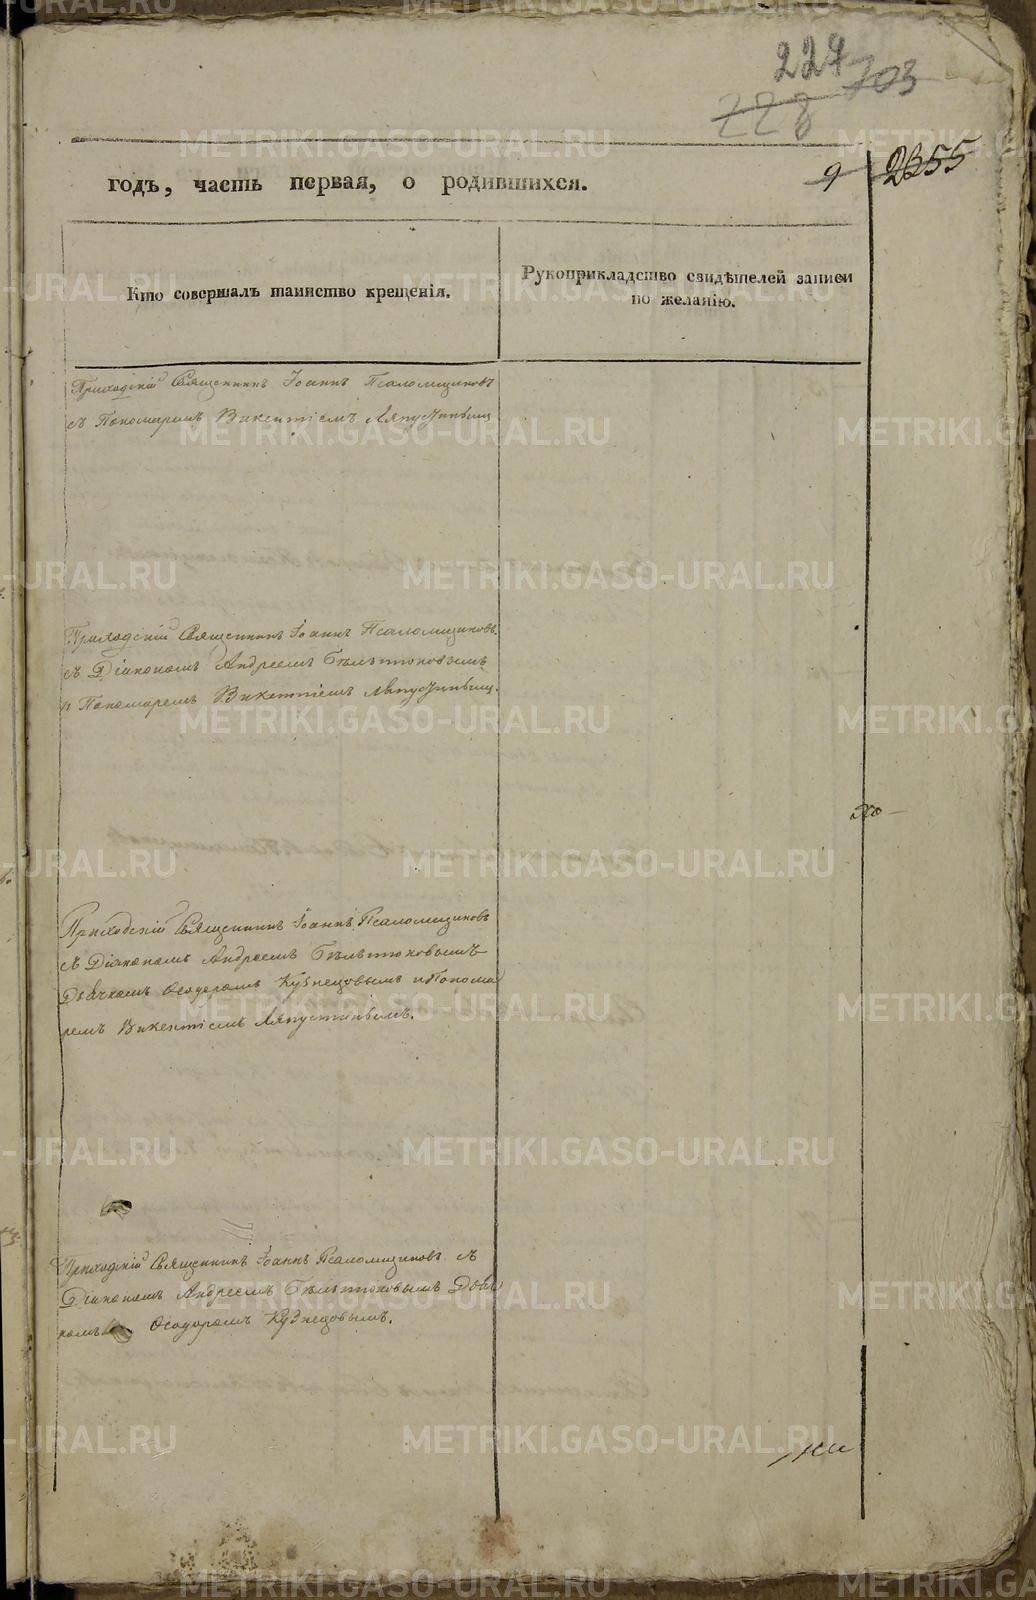 227
228 703
годъ, часть первая, о родившихся.
9
2355
Кто совершалъ таинство крещенія.
Рукоприкладство свидѣтелей записи
по желанію.
Приходскій Священникъ Іоаннъ Псаломщиковъ
съ Пономаремъ Викентіемъ Ляпустинымъ
Приходскій Священникъ Іоаннъ Псаломщиковъ
съ Діакономъ Андреемъ Бѣльтюковымъ
и Пономаремъ Викентіемъ Ляпустинымъ.
Приходскій Священникъ Іоаннъ Псаломщиковъ
съ Діакономъ Андреемъ Бѣльтюковымъ
Дьячкомъ Ѳеодоромъ Кузнецовымъ и Понома
ремъ Викентіемъ Ляпустинымъ.
Приходскій Священникъ Іоаннъ Псаломщиковъ съ
Діакономъ Андреемъ Бѣльтюковымъ Дьяч
комъ Ѳеодоромъ Кузнецовымъ.
METRIKI.GASO-URAL.RU